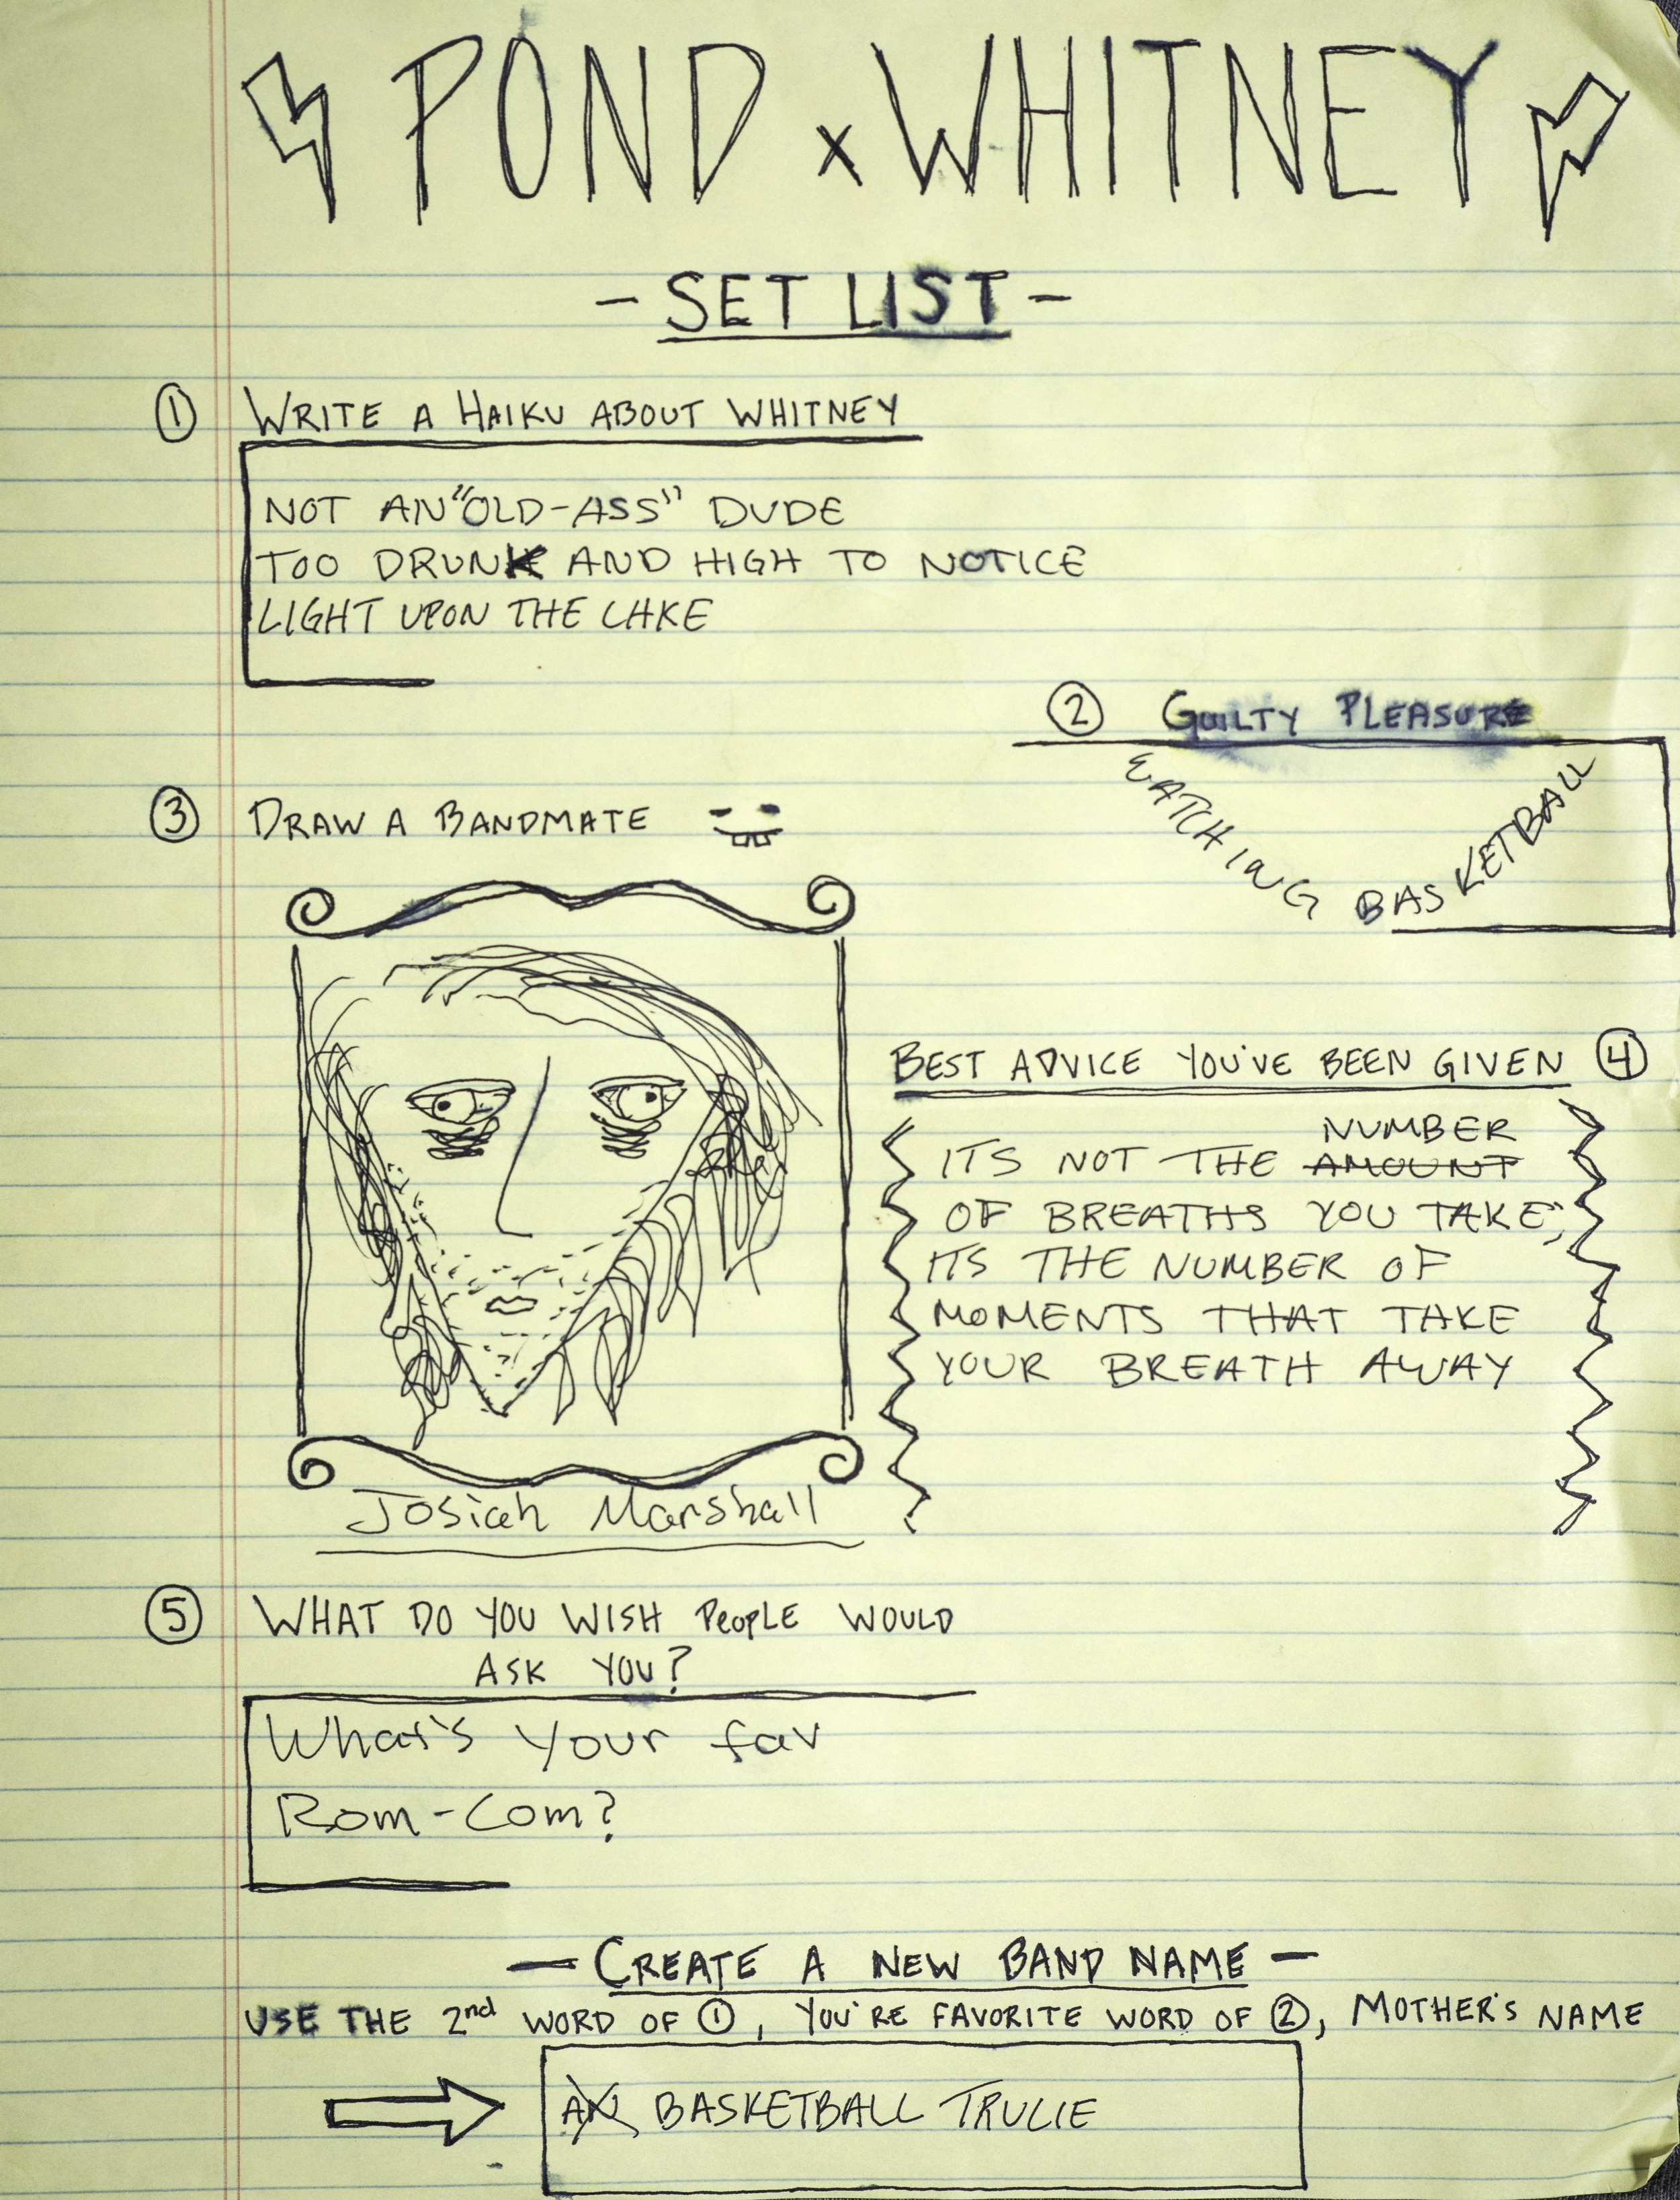 POND x WHITNEY
- SET LIST -
① WRITE A HAIKU ABOUT WHITNEY
NOT AN "OLD-ASS" DUDE
TOO DRUNK AND HIGH TO NOTICE
LIGHT UPON THE LAKE
② GUILTY PLEASURE
EATCHING BASKETBALL
③ DRAW A BANDMATE
Josiah Marshall
BEST ADVICE YOU'VE BEEN GIVEN ④
NUMBER
ITS NOT THE AMOUNT
OF BREATHS YOU TAKE,
ITS THE NUMBER OF
MOMENTS THAT TAKE
YOUR BREATH AWAY
⑤ WHAT DO YOU WISH PEOPLE WOULD
ASK YOU?
What's your fav
Rom-Com?
— CREATE A NEW BAND NAME —
USE THE 2nd WORD OF ①, YOU'RE FAVORITE WORD OF ②, MOTHER'S NAME
AN BASKETBALL TRULIE